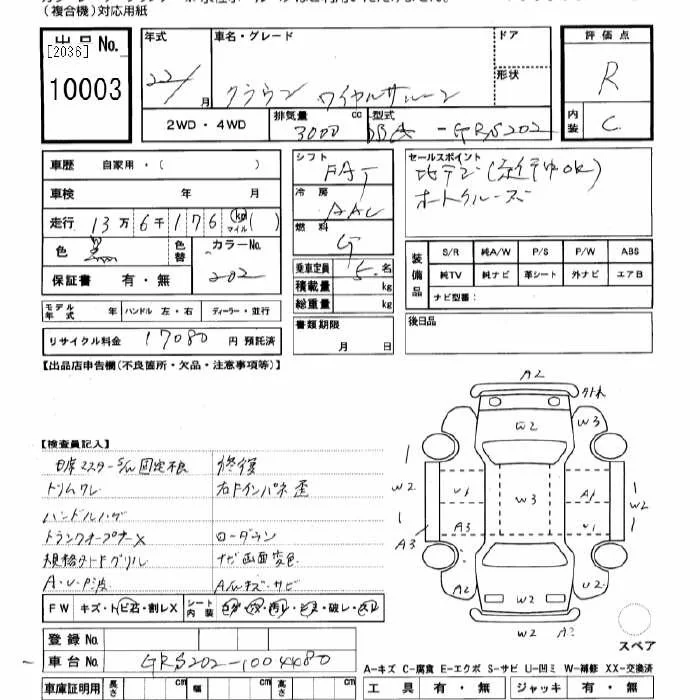 (複合機)対応用紙
出品 No.
[2036]
10003
年式
22/ 月
車名・グレード
クラウン ロイヤルサルーン
ドア
形状
評価点
R
内装
C
2WD・4WD
排気量 cc
3000
型式
DBA-GRS202
車歴 自家用・( )
車検 年 月
走行 13万6千176 (km マイル)( )
色 黒
色替
カラーNo.
202
保証書 有・無
シフト
FAT
冷房
AAC
燃料
G
乗車定員 5 名
積載量 kg
総重量 kg
セールスポイント
地デジ(走行中OK)
オートクルーズ
装備品
S/R 純A/W P/S P/W ABS
純TV 純ナビ 革シート 外ナビ エアB
ナビ型番:
モデル年式 年 ハンドル 左・右 ディーラー・並行
リサイクル料金 17080 円 預託済
書類期限
月 日
後日品
【出品店申告欄(不良箇所・欠品・注意事項等)】
【検査員記入】
修復
トリムワレ 右Fインパネ歪
ハンドルハゲ
トランクオープナーX ローダウン
規格外ドグリル ナビ画面変色
A・U・P波 A/Wキズ・サビ
FW キズ・トビ石・割レX
シート内装
No.
登録 No.
車台 No. GRS202-1004480
車庫証明用 長さ cm 幅 cm 高さ cm
A2
外れ
W2
W3
W2
U1
W3
A1
W2
A3
A3
U1
A2
W2
U2
W2
A2
スペア
A-キズ C-腐食 E-エクボ S-サビ U-凹ミ W-補修 XX-交換済
工具 有・無 ジャッキ 有・無